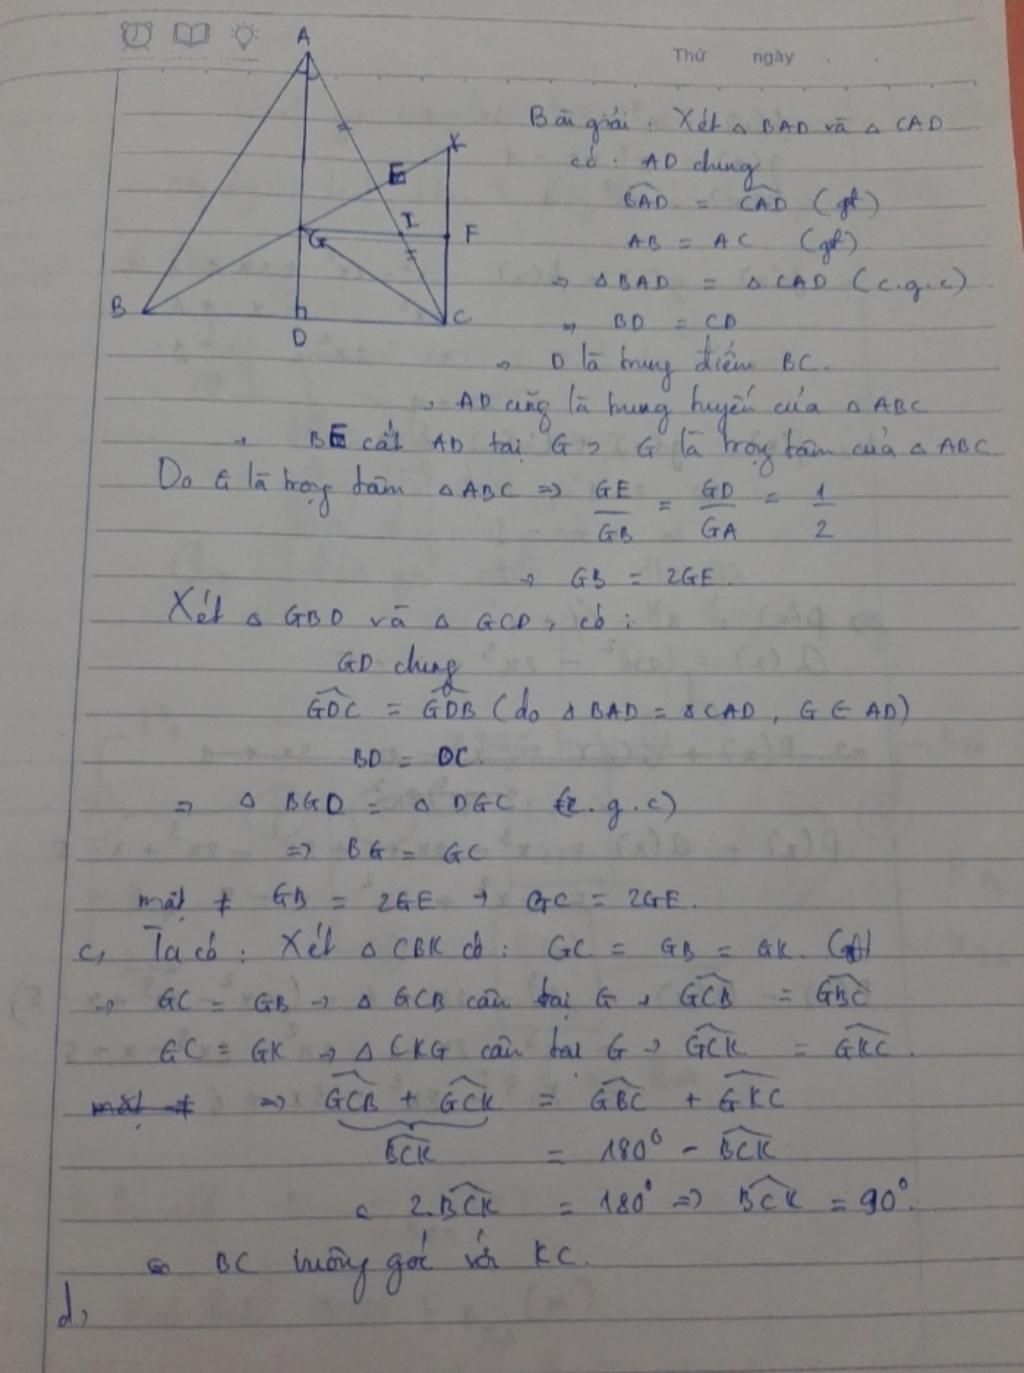 Thứ ngày
A
K
E
I
G
F
B
D
C
Bài giải: Xét △ BAD và △ CAD
có: AD chung
BAD = CAD (gt)
AB = AC (gt)
⇒ △BAD = △CAD (c.g.c)
⇒ BD = CD
→ D là trung điểm BC.
→ AD cũng là trung tuyến của △ABC
→ BE cắt AD tại G → G là trọng tâm của △ABC.
Do G là trọng tâm △ABC ⇒ GE/GB = GD/GA = 1/2
→ GB = 2GE.
Xét △ GBD và △ GCD, có:
GD chung
GDC = GDB (do △BAD = △CAD, G ∈ AD)
BD = DC.
⇒ △ BGD = △ DGC (c.g.c)
⇒ BG = GC
mặt ≠ GB = 2GE → GC = 2GE.
c, Ta có: Xét △ CBK có: GC = GB = GK. (gt)
→ GC = GB → △ GCB cân tại G → GCB = GBC
GC = GK → △ CKG cân tại G → GCK = GKC.
mặt ≠ ⇒ GCB + GCK = GBC + GKC
BCK = 180° - BCK
2.BCK = 180° ⇒ BCK = 90°.
BC vuông góc với KC.
d,